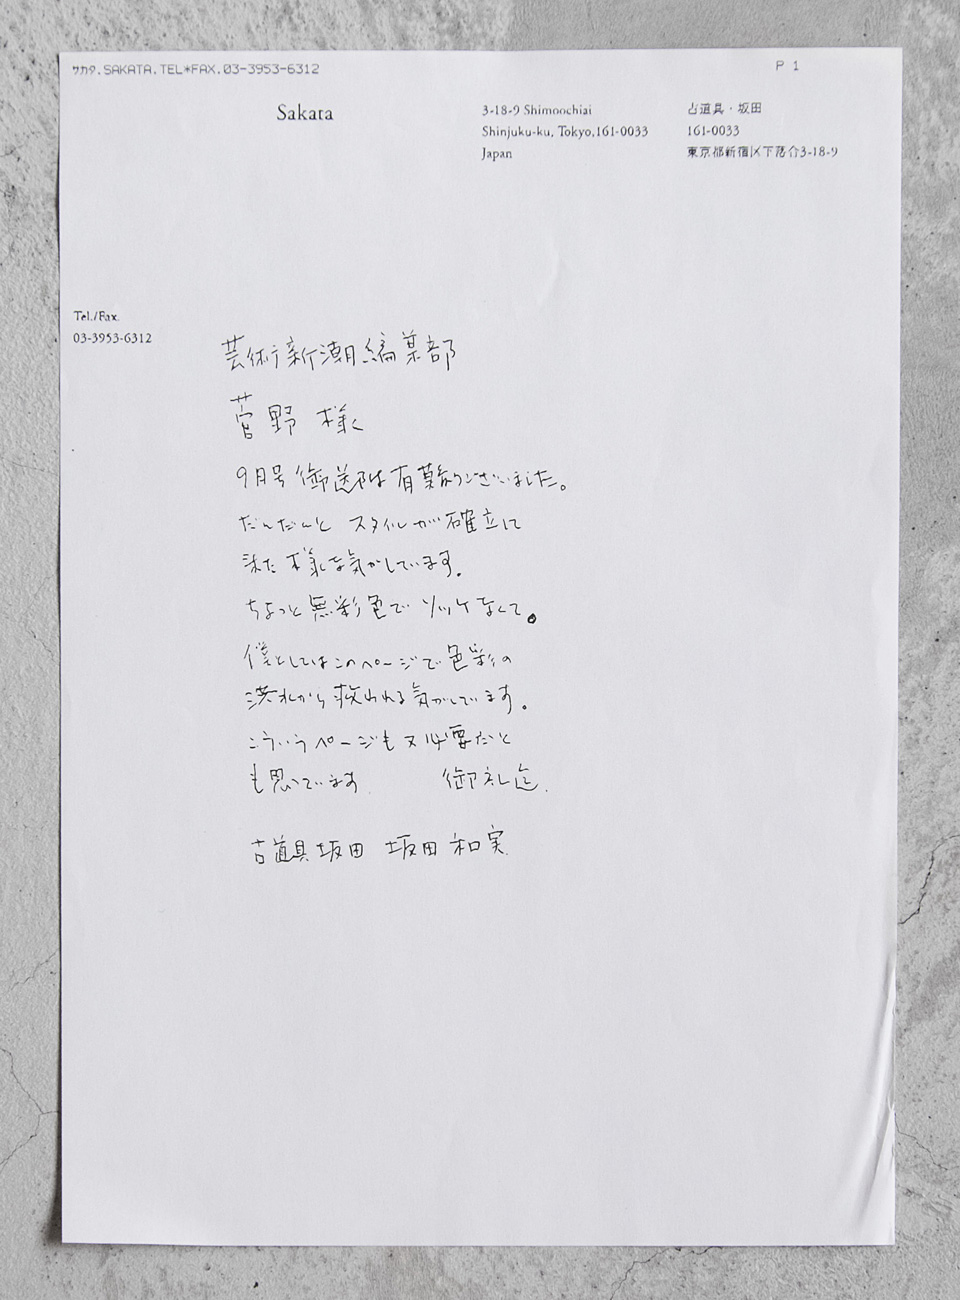 サカタ.SAKATA.TEL*FAX.03-3953-6312
P 1
Sakata
3-18-9 Shimoochiai
Shinjuku-ku, Tokyo,161-0033
Japan
古道具・坂田
161-0033
東京都新宿区下落合3-18-9
Tel./Fax.
03-3953-6312
芸術新潮編集部
菅野 様
9月号御送付は有難うございました。
だんだんと スタイルが確立して
来た様な気がしています。
ちょっと無彩色でソッケなくて。
僕としてはこのページで色彩の
洪水から救われる気がしています。
こういうページも又必要だと
も思っています. 御礼迄.
古道具坂田 坂田和実.